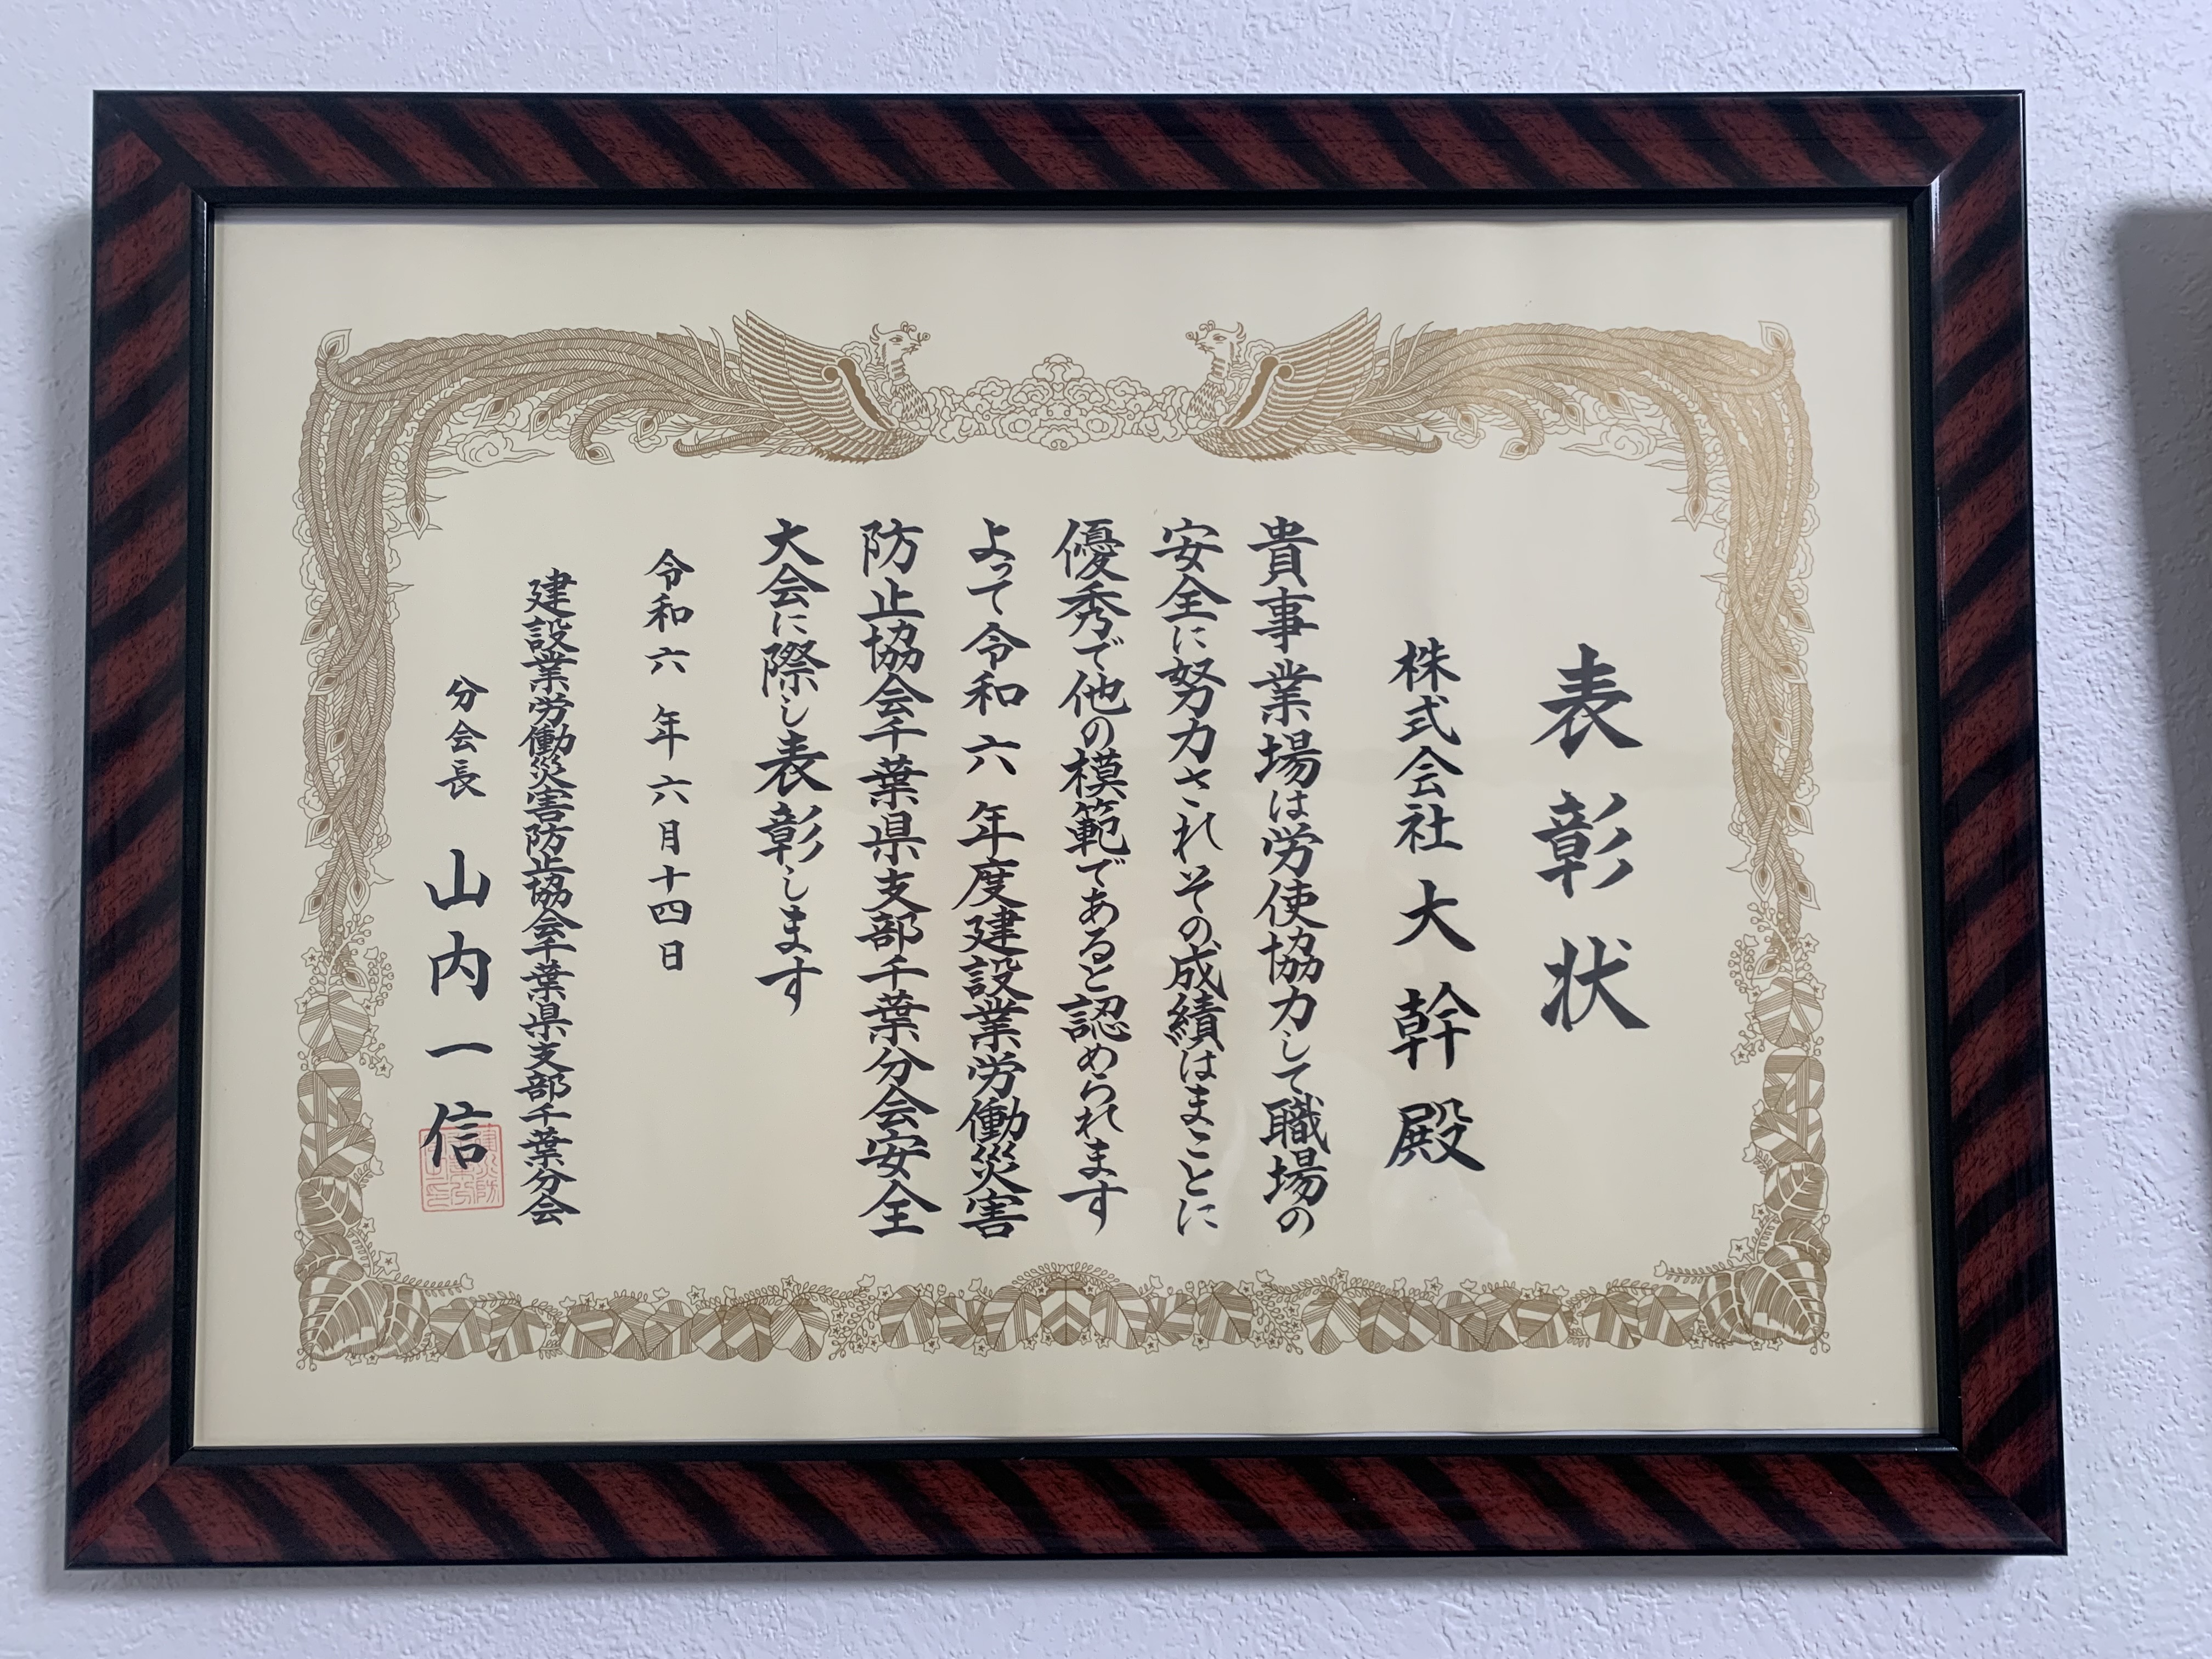 表彰状
株式会社大幹殿
貴事業場は労使協力して職場の
安全に努力されその成績はまことに
優秀で他の模範であると認められます
よって令和六年度建設業労働災害
防止協会千葉県支部千葉分会安全
大会に際し表彰します
令和六年六月十四日
建設業労働災害防止協会千葉県支部千葉分会
分会長 山内一信